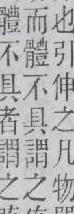 也引伸之凡物
而體不具謂之
體不具者謂之